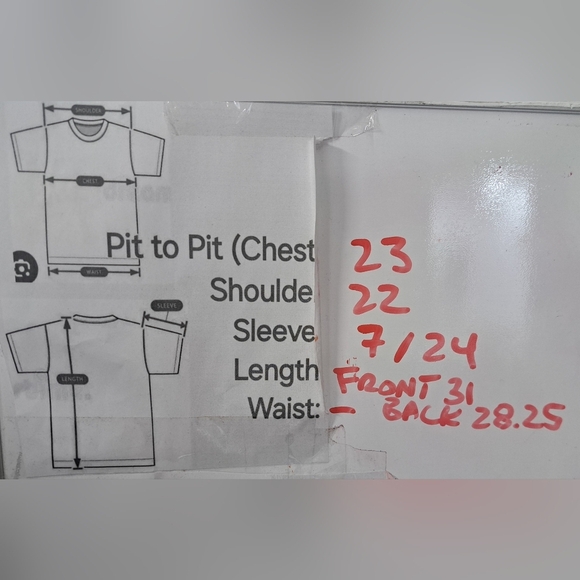 SHOULDER
CHEST
WAIST
SLEEVE
LENGTH
Pit to Pit (Chest 23
Shoulde 22
Sleeve 7/24
Length FRONT 31
Waist: - BACK 28.25